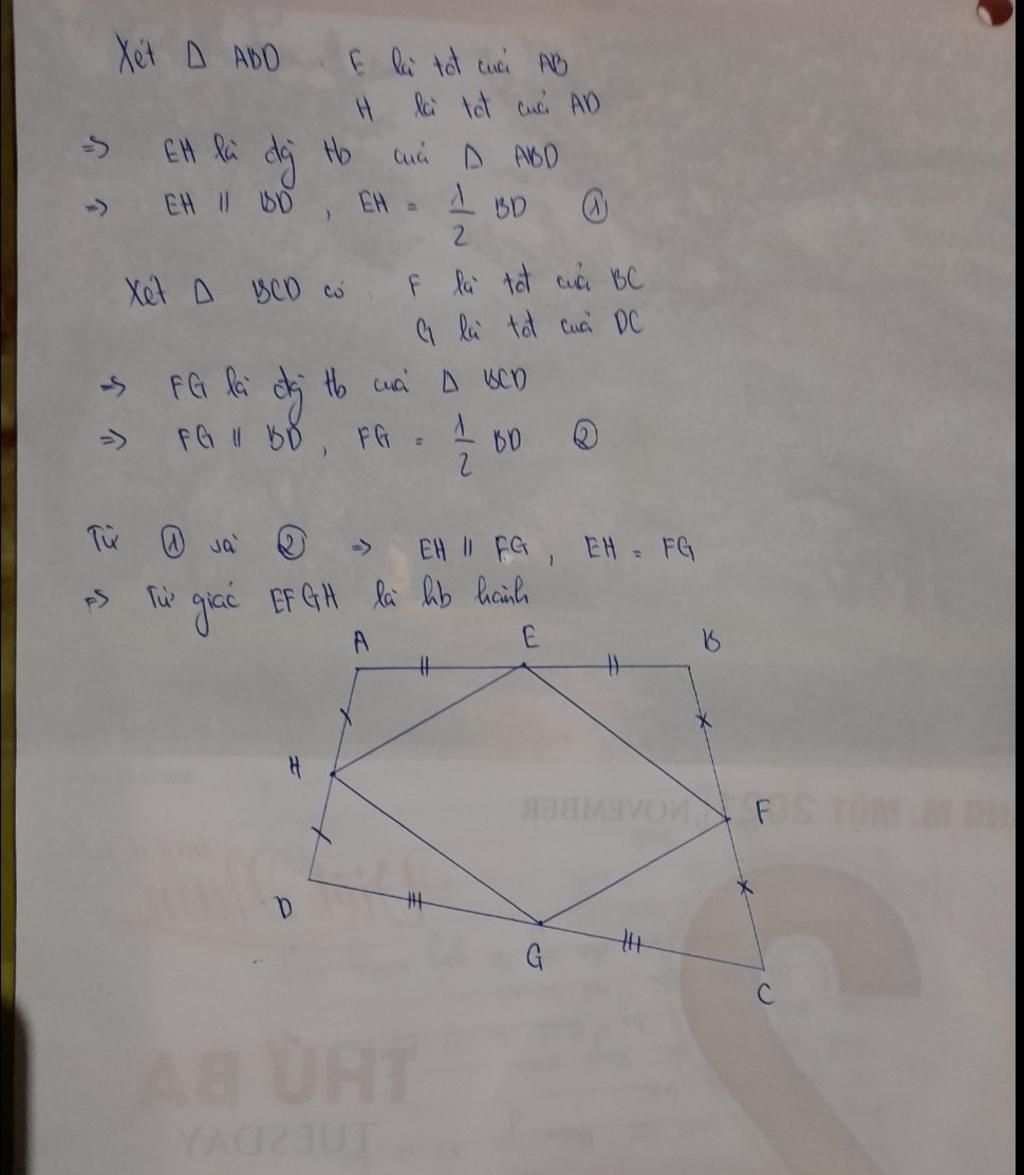 Xét Δ ABD . E là tđ của AB
H là tđ của AD
=> EH là đg tb của Δ ABD
=> EH // BD , EH = 1/2 BD ①
Xét Δ BCD có . F là tđ của BC
G là tđ của DC
=> FG là đg tb của Δ BCD
=> FG // BD , FG = 1/2 BD ②
Từ ① và ② => EH // FG , EH = FG
=> Tứ giác EFGH là hb hành
A E B
H F
D G C
NOVEMBER
2
THỨ BA
TUESDAY